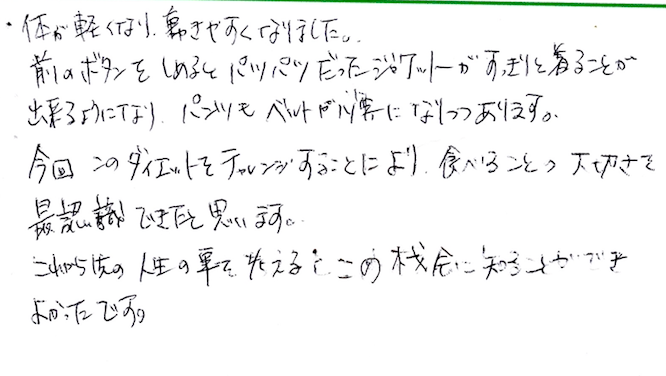 ・体が軽くなり、動きやすくなりました。
前のボタンをしめるとパツパツだったジャケットがすっきりと着ることが
出来るようになり、パンツもベルトが必需になりつつあります。
今回このダイエットをチャレンジすることにより、食べることの大切さを
最認識できたと思います。
これから先の人生の事を考えるとこの機会に知ることができ
よかったです。